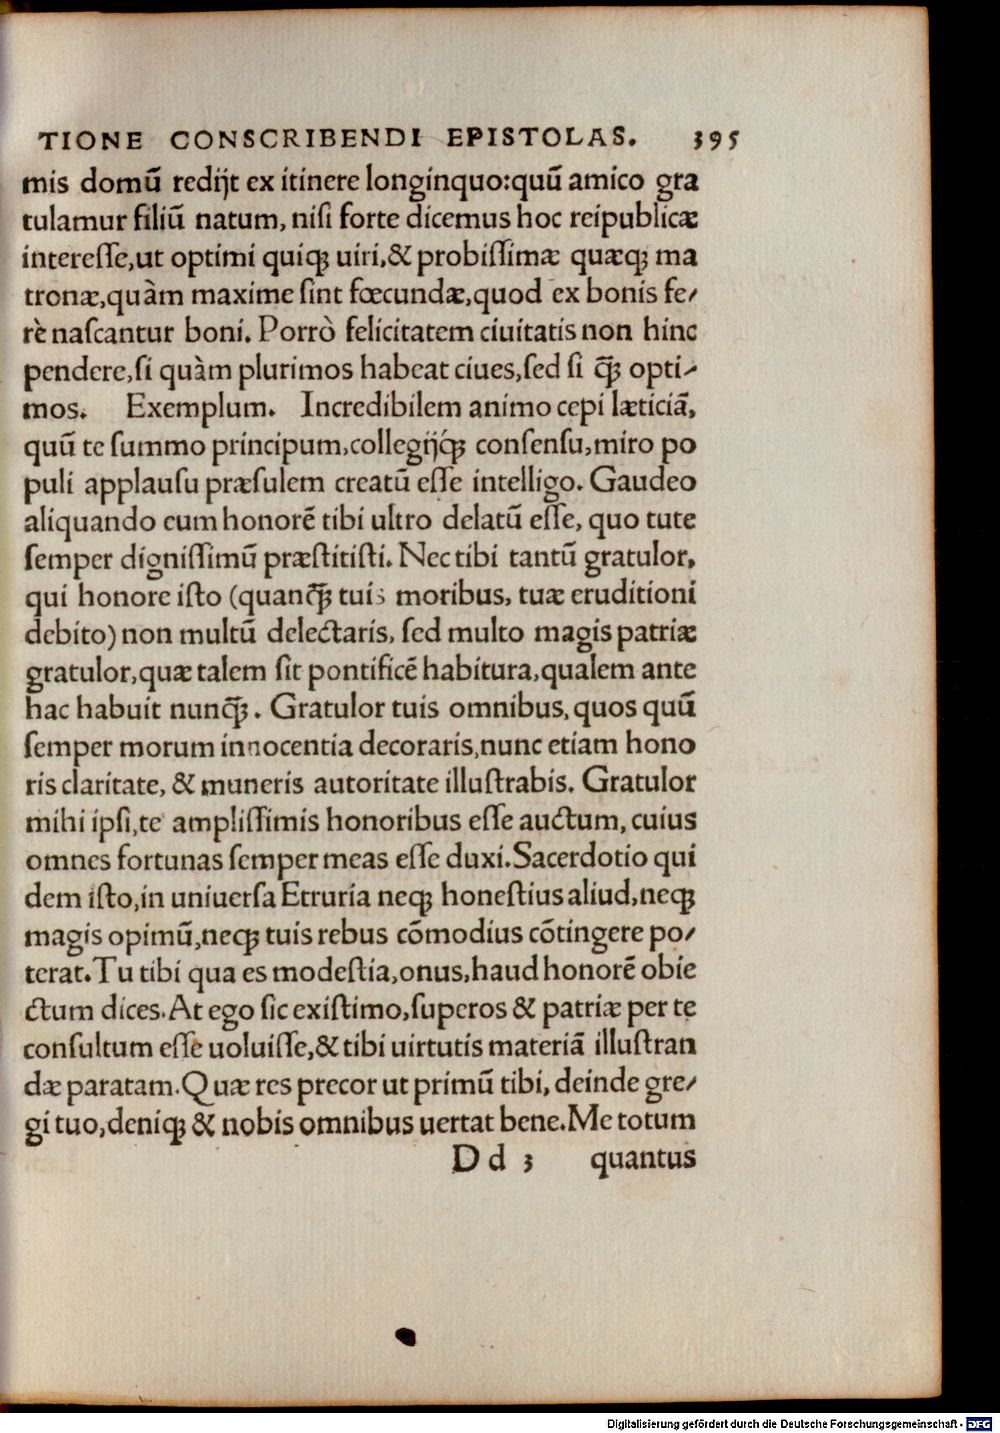 TIONE CONSCRIBENDI EPISTOLAS. 395
mis domū redijt ex itinere longinquo:quū amico gra
tulamur filiū natum, niſi forte dicemus hoc reipublicæ
intereſſe,ut optimi quiqꝫ uiri,& probiſſimæ quæqꝫ ma
tronæ,quàm maxime ſint fœcundæ,quod ex bonis fe/
rè naſcantur boni. Porrò felicitatem ciuitatis non hinc
pendere,ſi quàm plurimos habeat ciues,ſed ſi q̃ꝫ opti/
mos. Exemplum. Incredibilem animo cepi læticiã,
quū te ſummo principum,collegijq́ꝫ conſenſu,miro po
puli applauſu præſulem creatū eſſe intelligo. Gaudeo
aliquando eum honorē tibi ultro delatū eſſe, quo tute
ſemper digniſſimū præſtitiſti. Nec tibi tantū gratulor,
qui honore iſto (quanq̃ꝫ tuis moribus, tuæ eruditioni
debito) non multū delectaris, ſed multo magis patriæ
gratulor,quæ talem ſit pontificē habitura,qualem ante
hac habuit nunq̃ꝫ. Gratulor tuis omnibus, quos quū
ſemper morum innocentia decoraris,nunc etiam hono
ris claritate, & muneris autoritate illuſtrabis. Gratulor
mihi ipſi,te ampliſſimis honoribus eſſe auctum, cuius
omnes fortunas ſemper meas eſſe duxi.Sacerdotio qui
dem iſto,in uniuerſa Etruria neqꝫ honeſtius aliud,neqꝫ
magis opimū,neqꝫ tuis rebus cōmodius cōtingere po/
terat.Tu tibi qua es modeſtia,onus,haud honorē obie
ctum dices.At ego ſic exiſtimo,ſuperos & patriæ per te
conſultum eſſe uoluiſſe,& tibi uirtutis materiã illuſtran
dæ paratam.Quæ res precor ut primū tibi, deinde gre/
gi tuo,deniqꝫ & nobis omnibus uertat bene.Me totum
D d 3 quantus
Digitalisierung gefördert durch die Deutsche Forschungsgemeinschaft - DFG